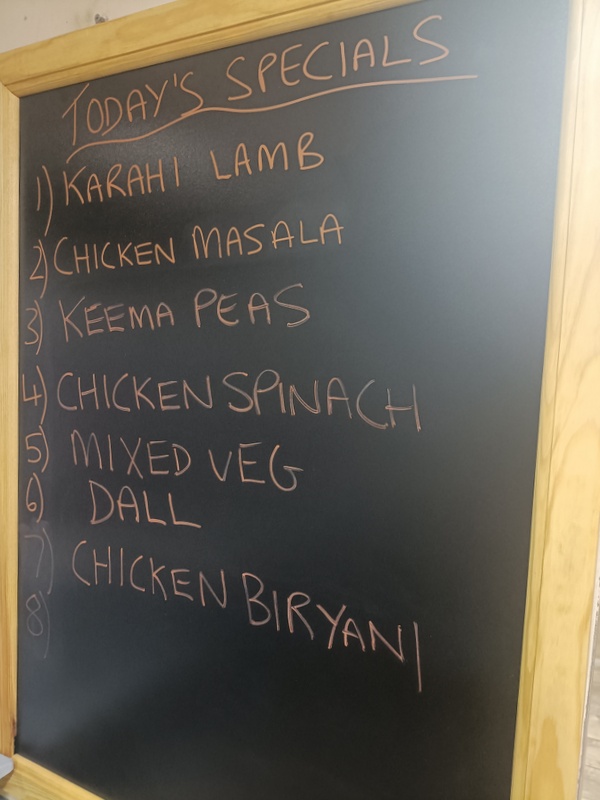 TODAY'S SPECIALS
1) KARAHI LAMB
2) CHICKEN MASALA
3) KEEMA PEAS
4) CHICKEN SPINACH
5) MIXED VEG
6) DALL
7) CHICKEN BIRYANI
8)